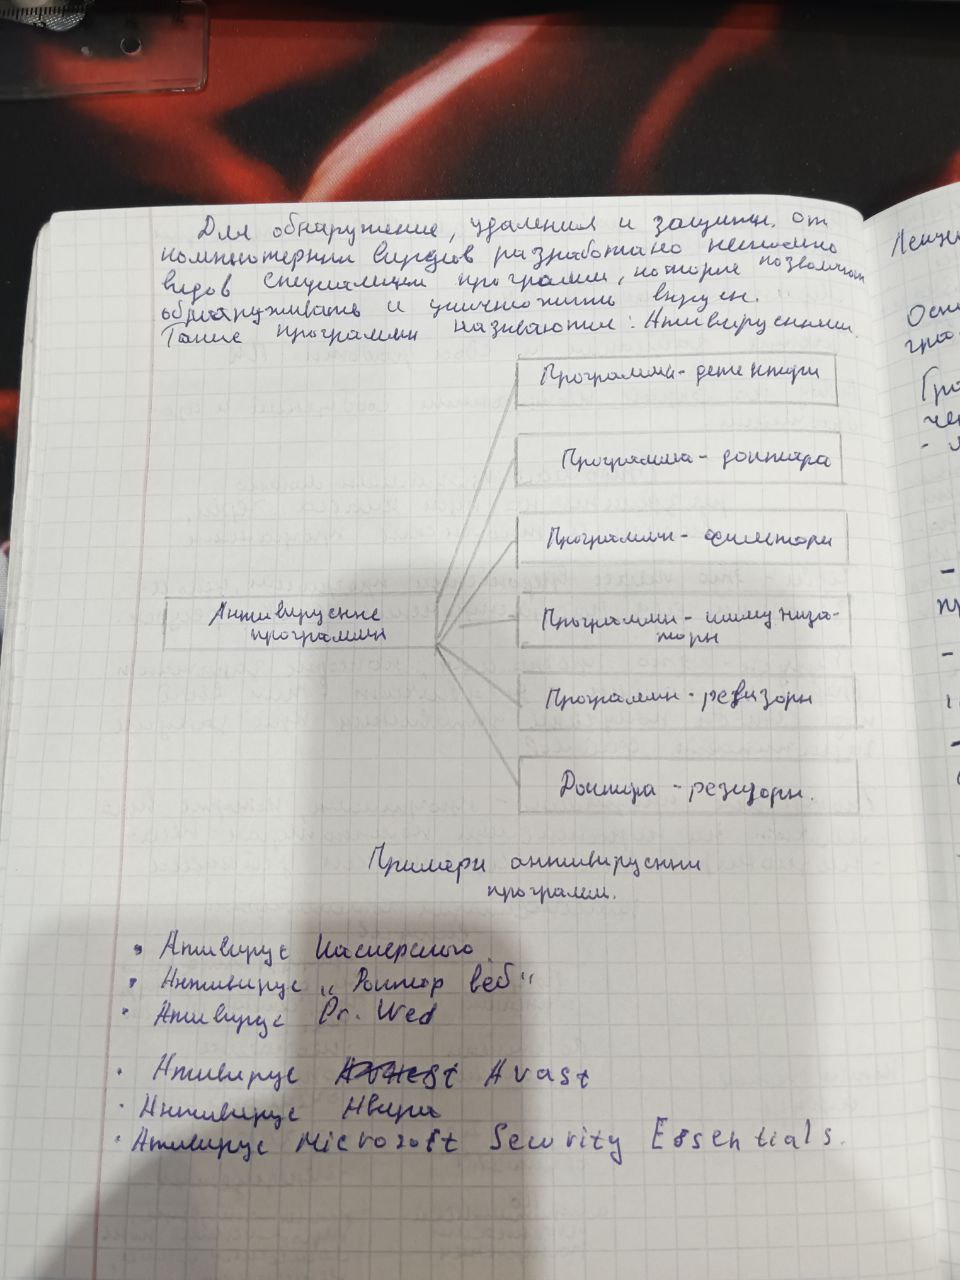 Для обнаружение, удаления и защиты от
компьютерных вирусов разработано несколько
видов специальных программ, которые позволяют
обнаруживать и уничтожить вирусы.
Такие программы называются: Антивирусными.
Программы-детекторы
Программа-доктора
Программы-фильтры
Антивирусные
программы
Программы-иммуниза-
торы
Программы-ревизоры
Доктора-ревизоры.
Примеры антивирусных
программ.
• Ативирус Касперского
• Антивирус "Доктор веб"
• Ативирус Dr. Wed
• Нтивирус Avast
• Антивирус Авира
• Ативирус Microsoft Security Essentials.
Осно
- 
-